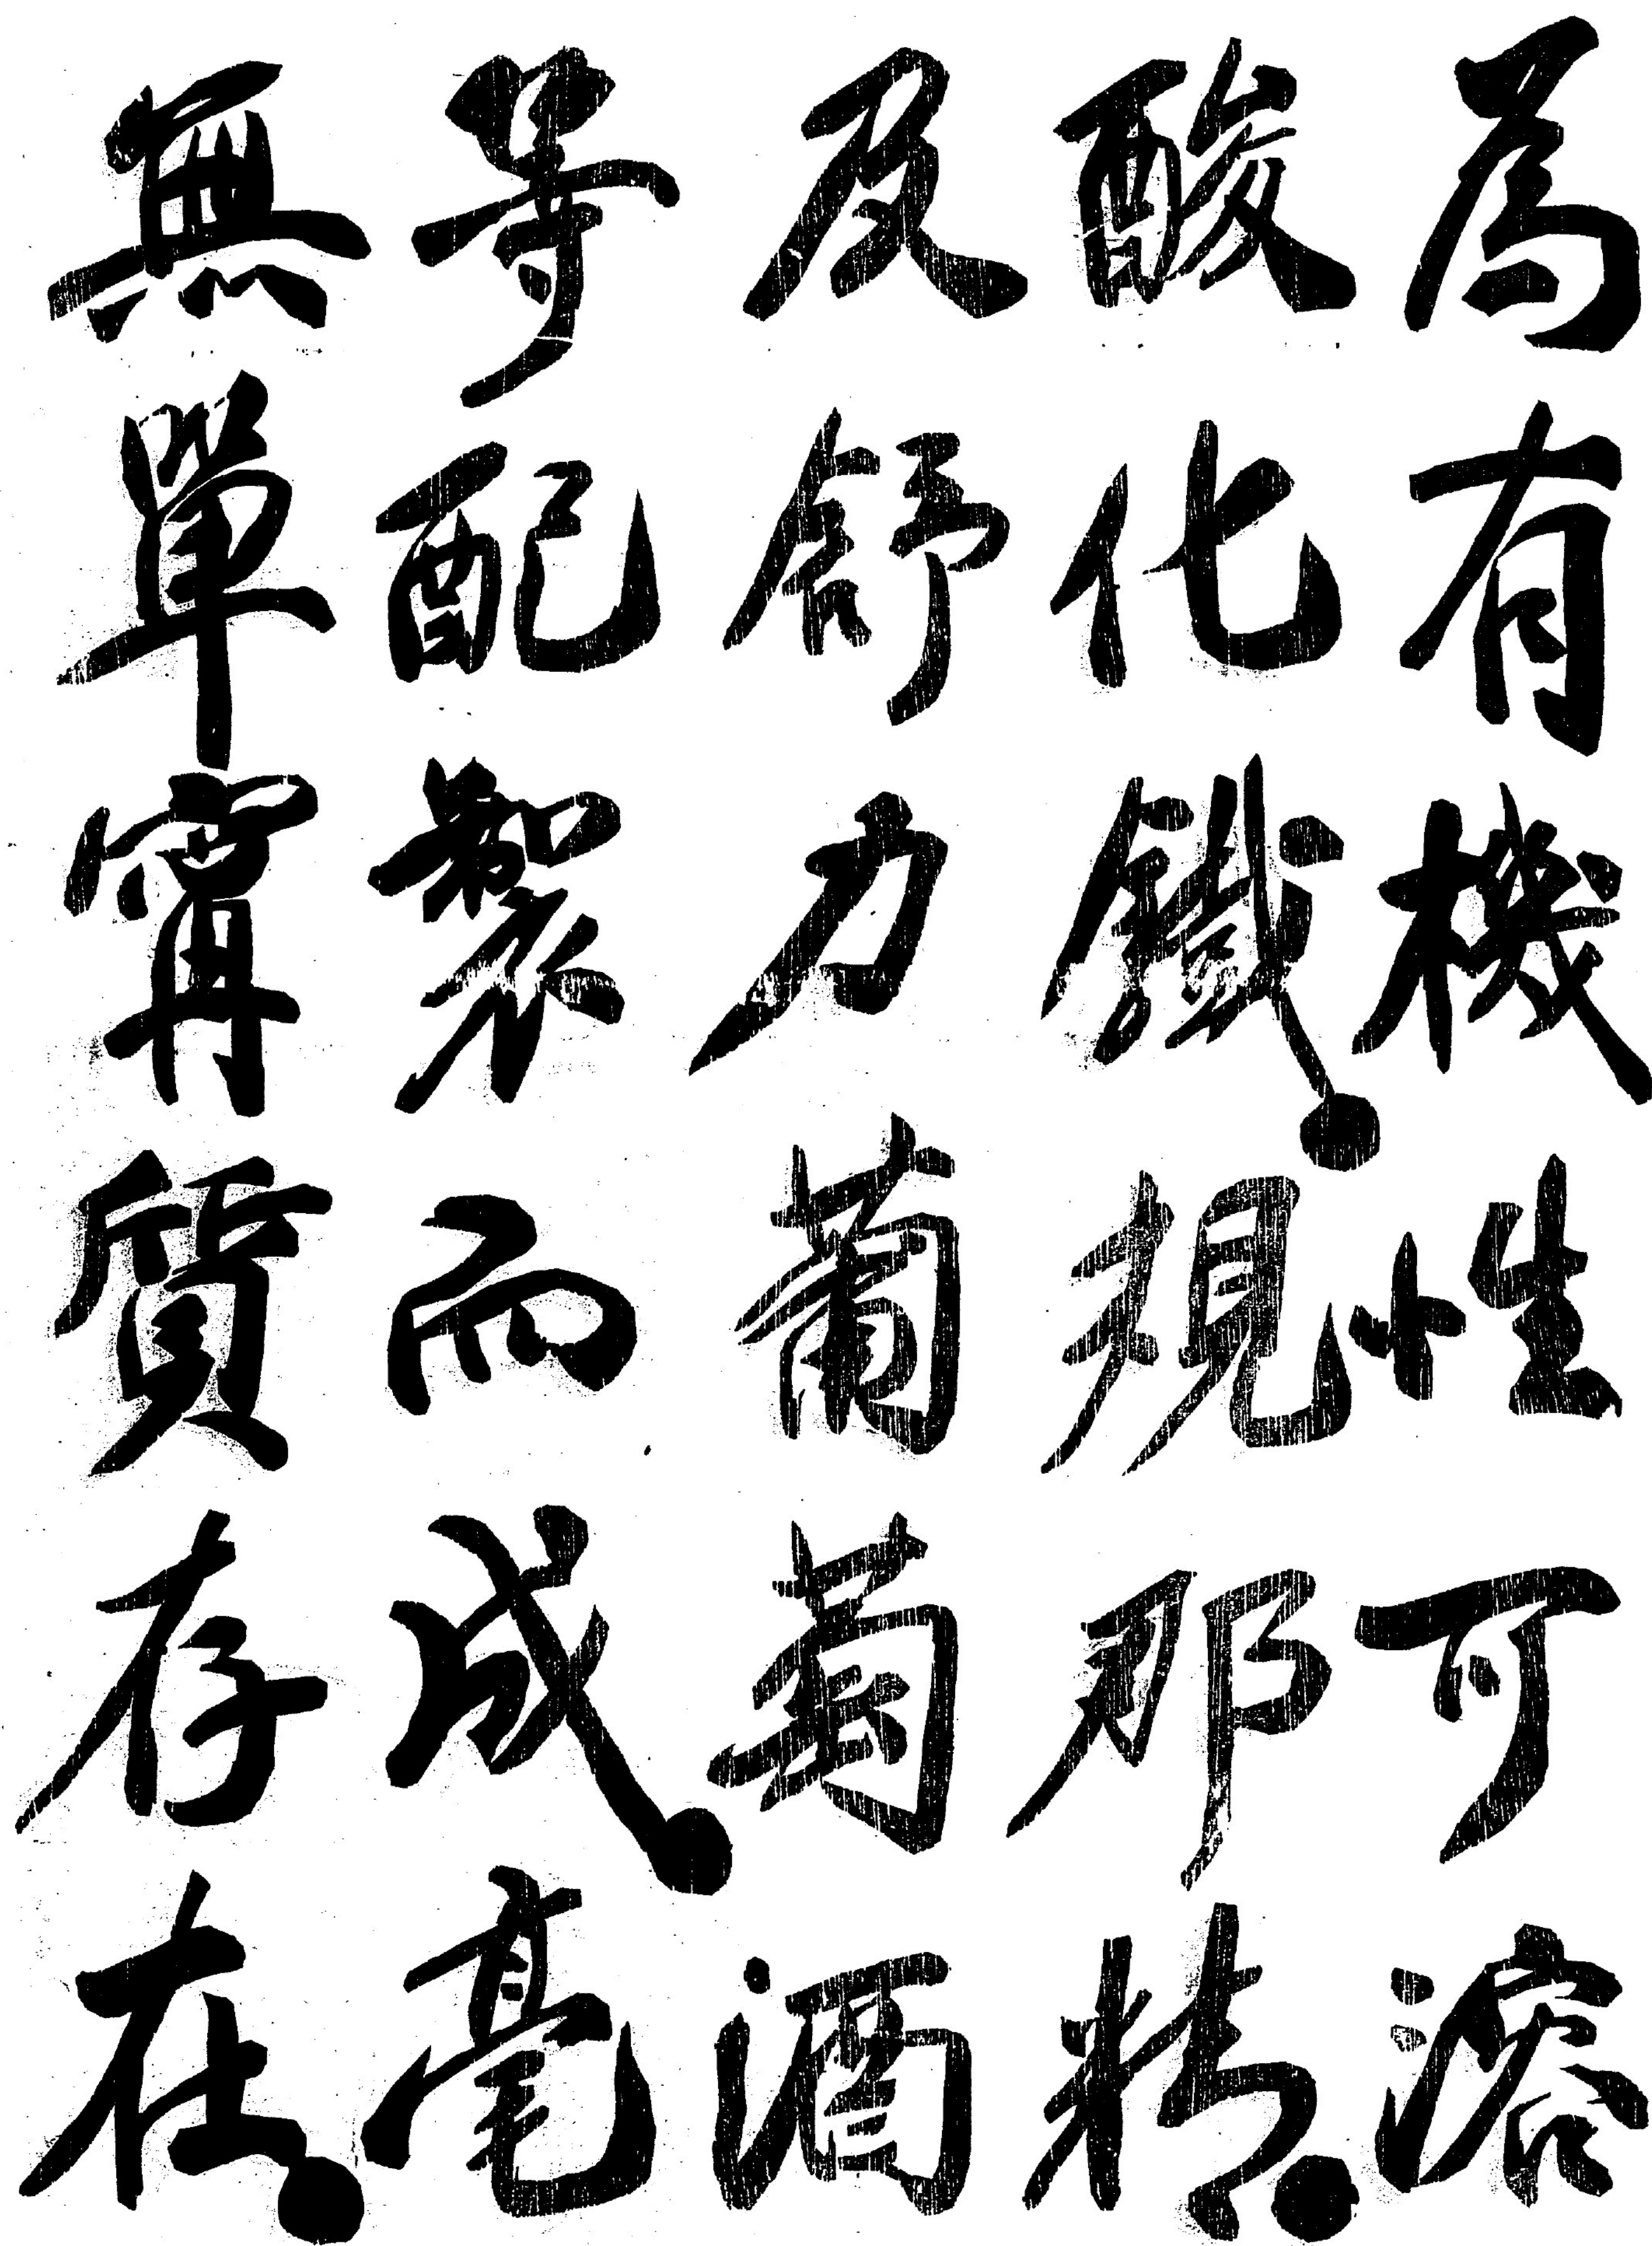 為有機性可溶
酸化鐵。規那精。
及舒力葡萄酒
等配製而成。毫
無單寗質存在。